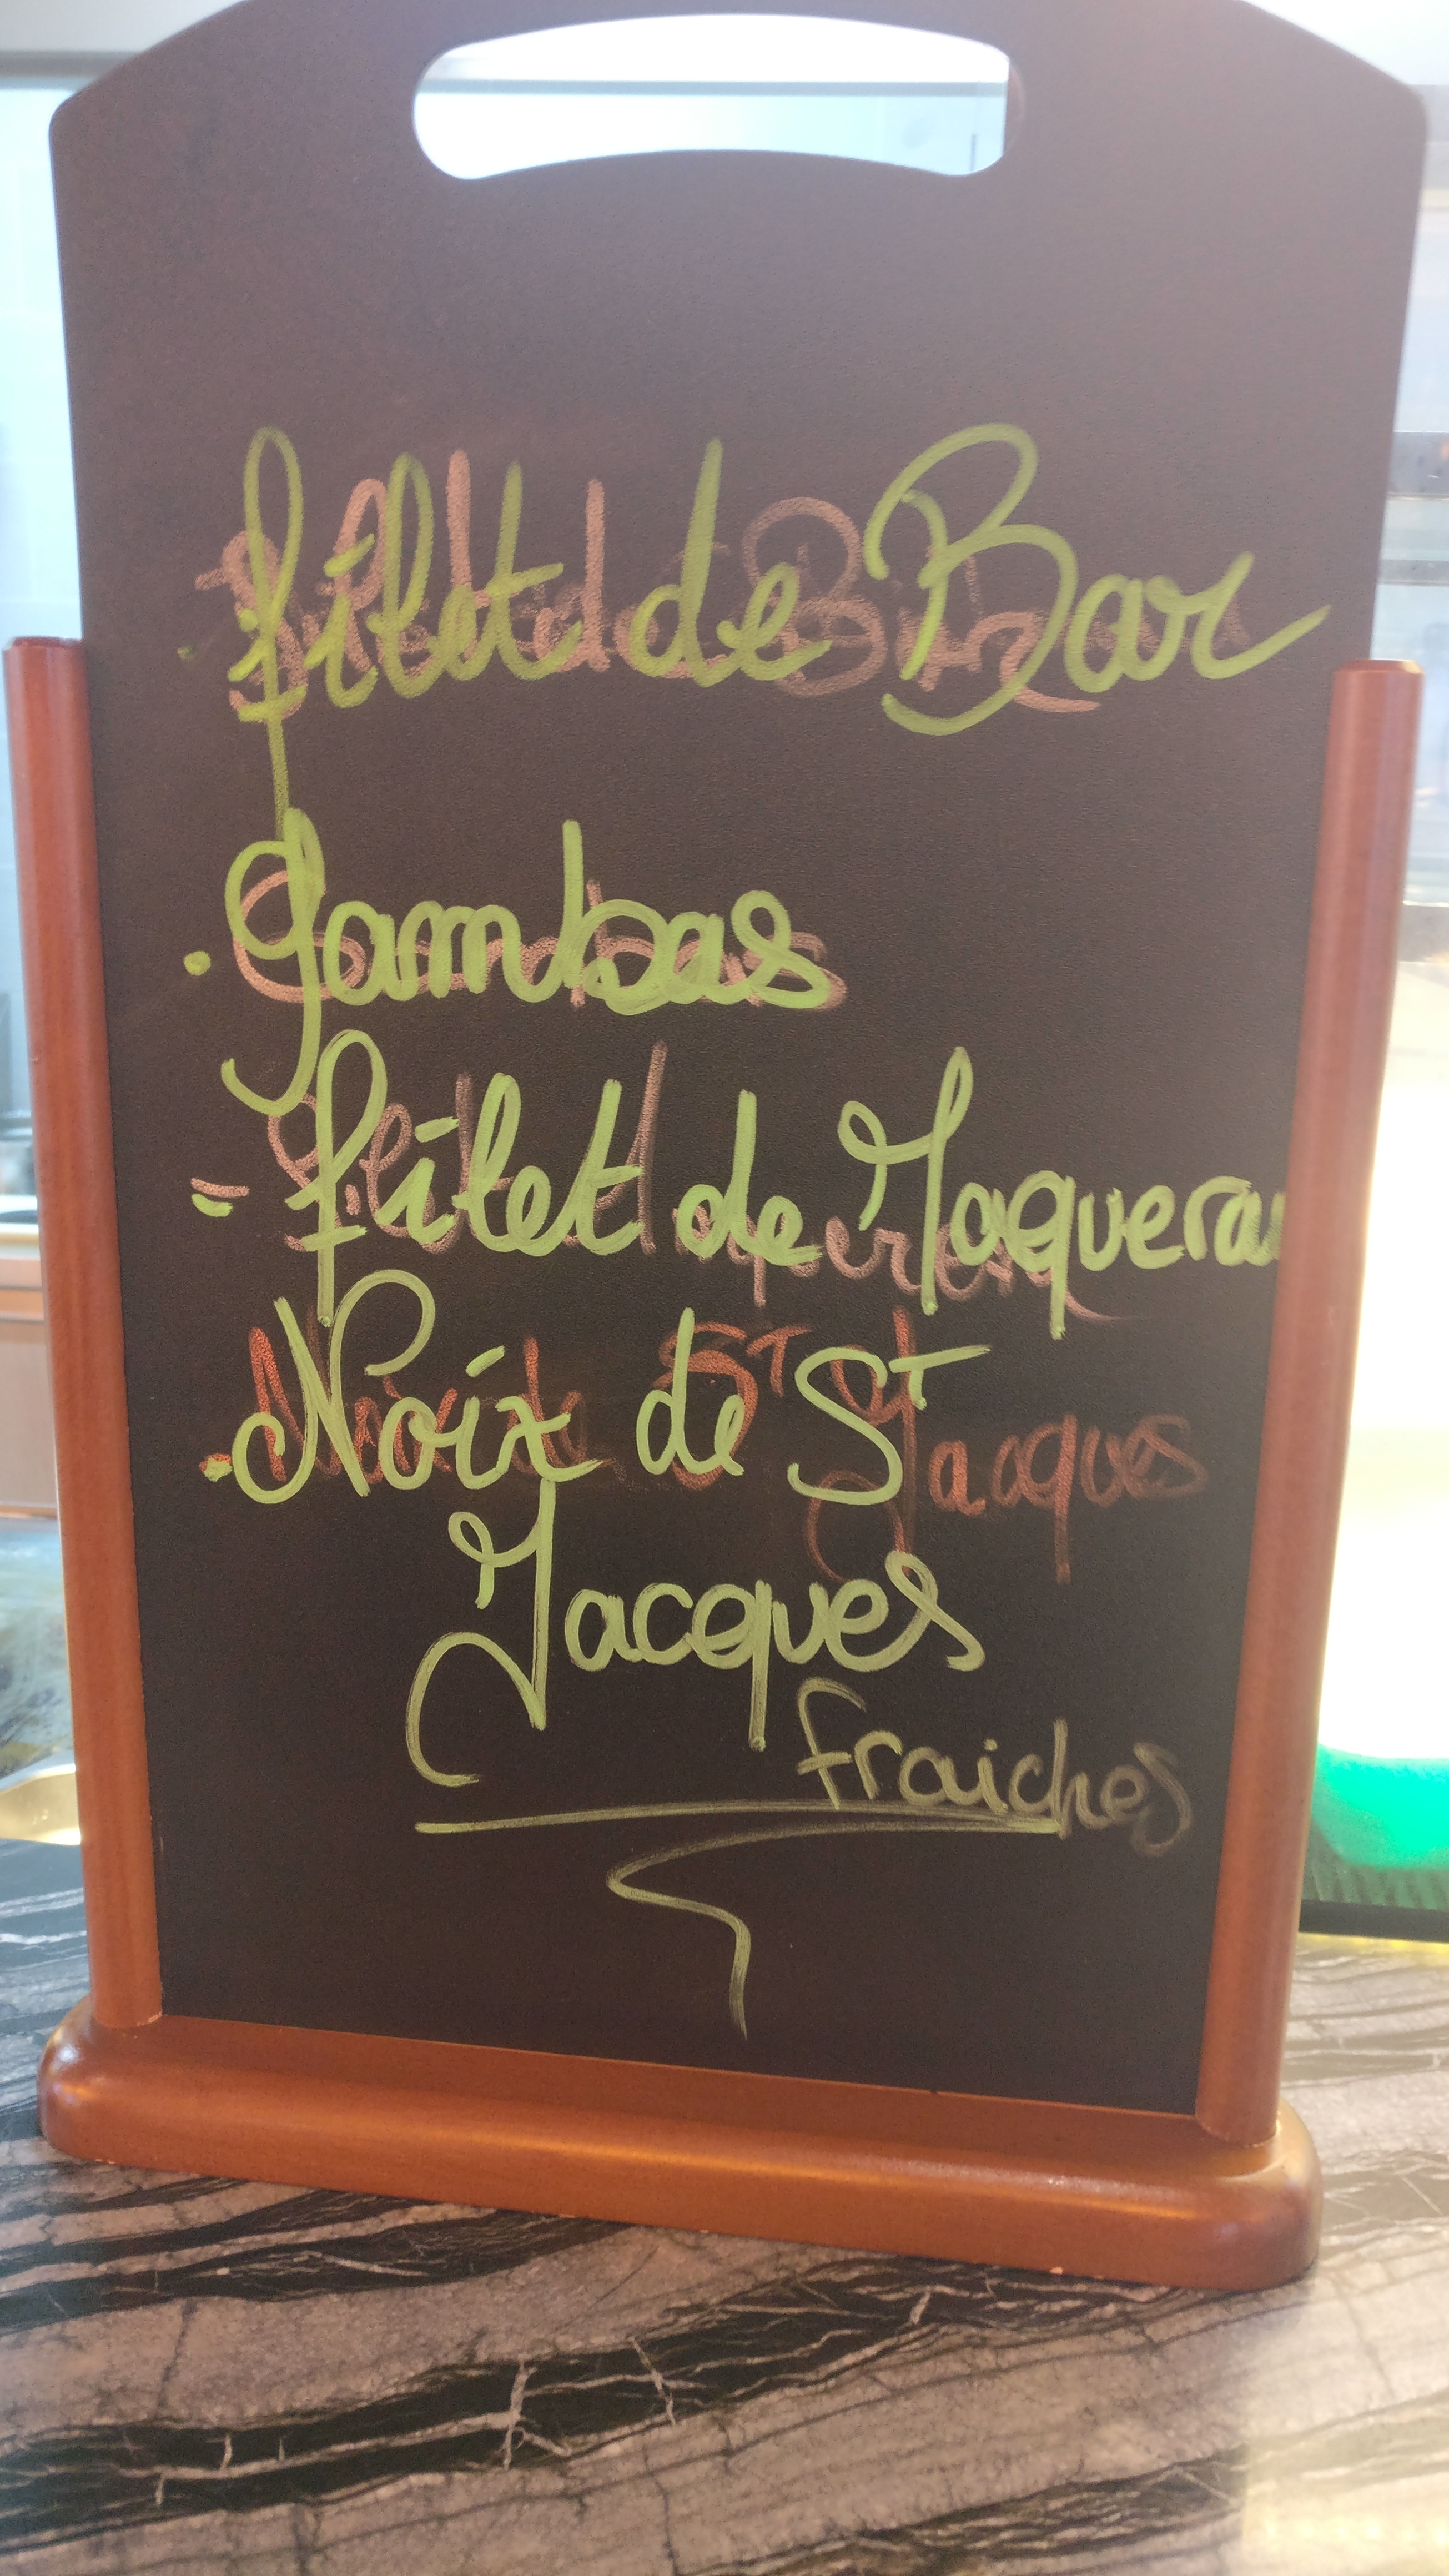 . filet de Bar
. Gambas
- filet de Maquerau
. Noix de St
Jacques
fraiches